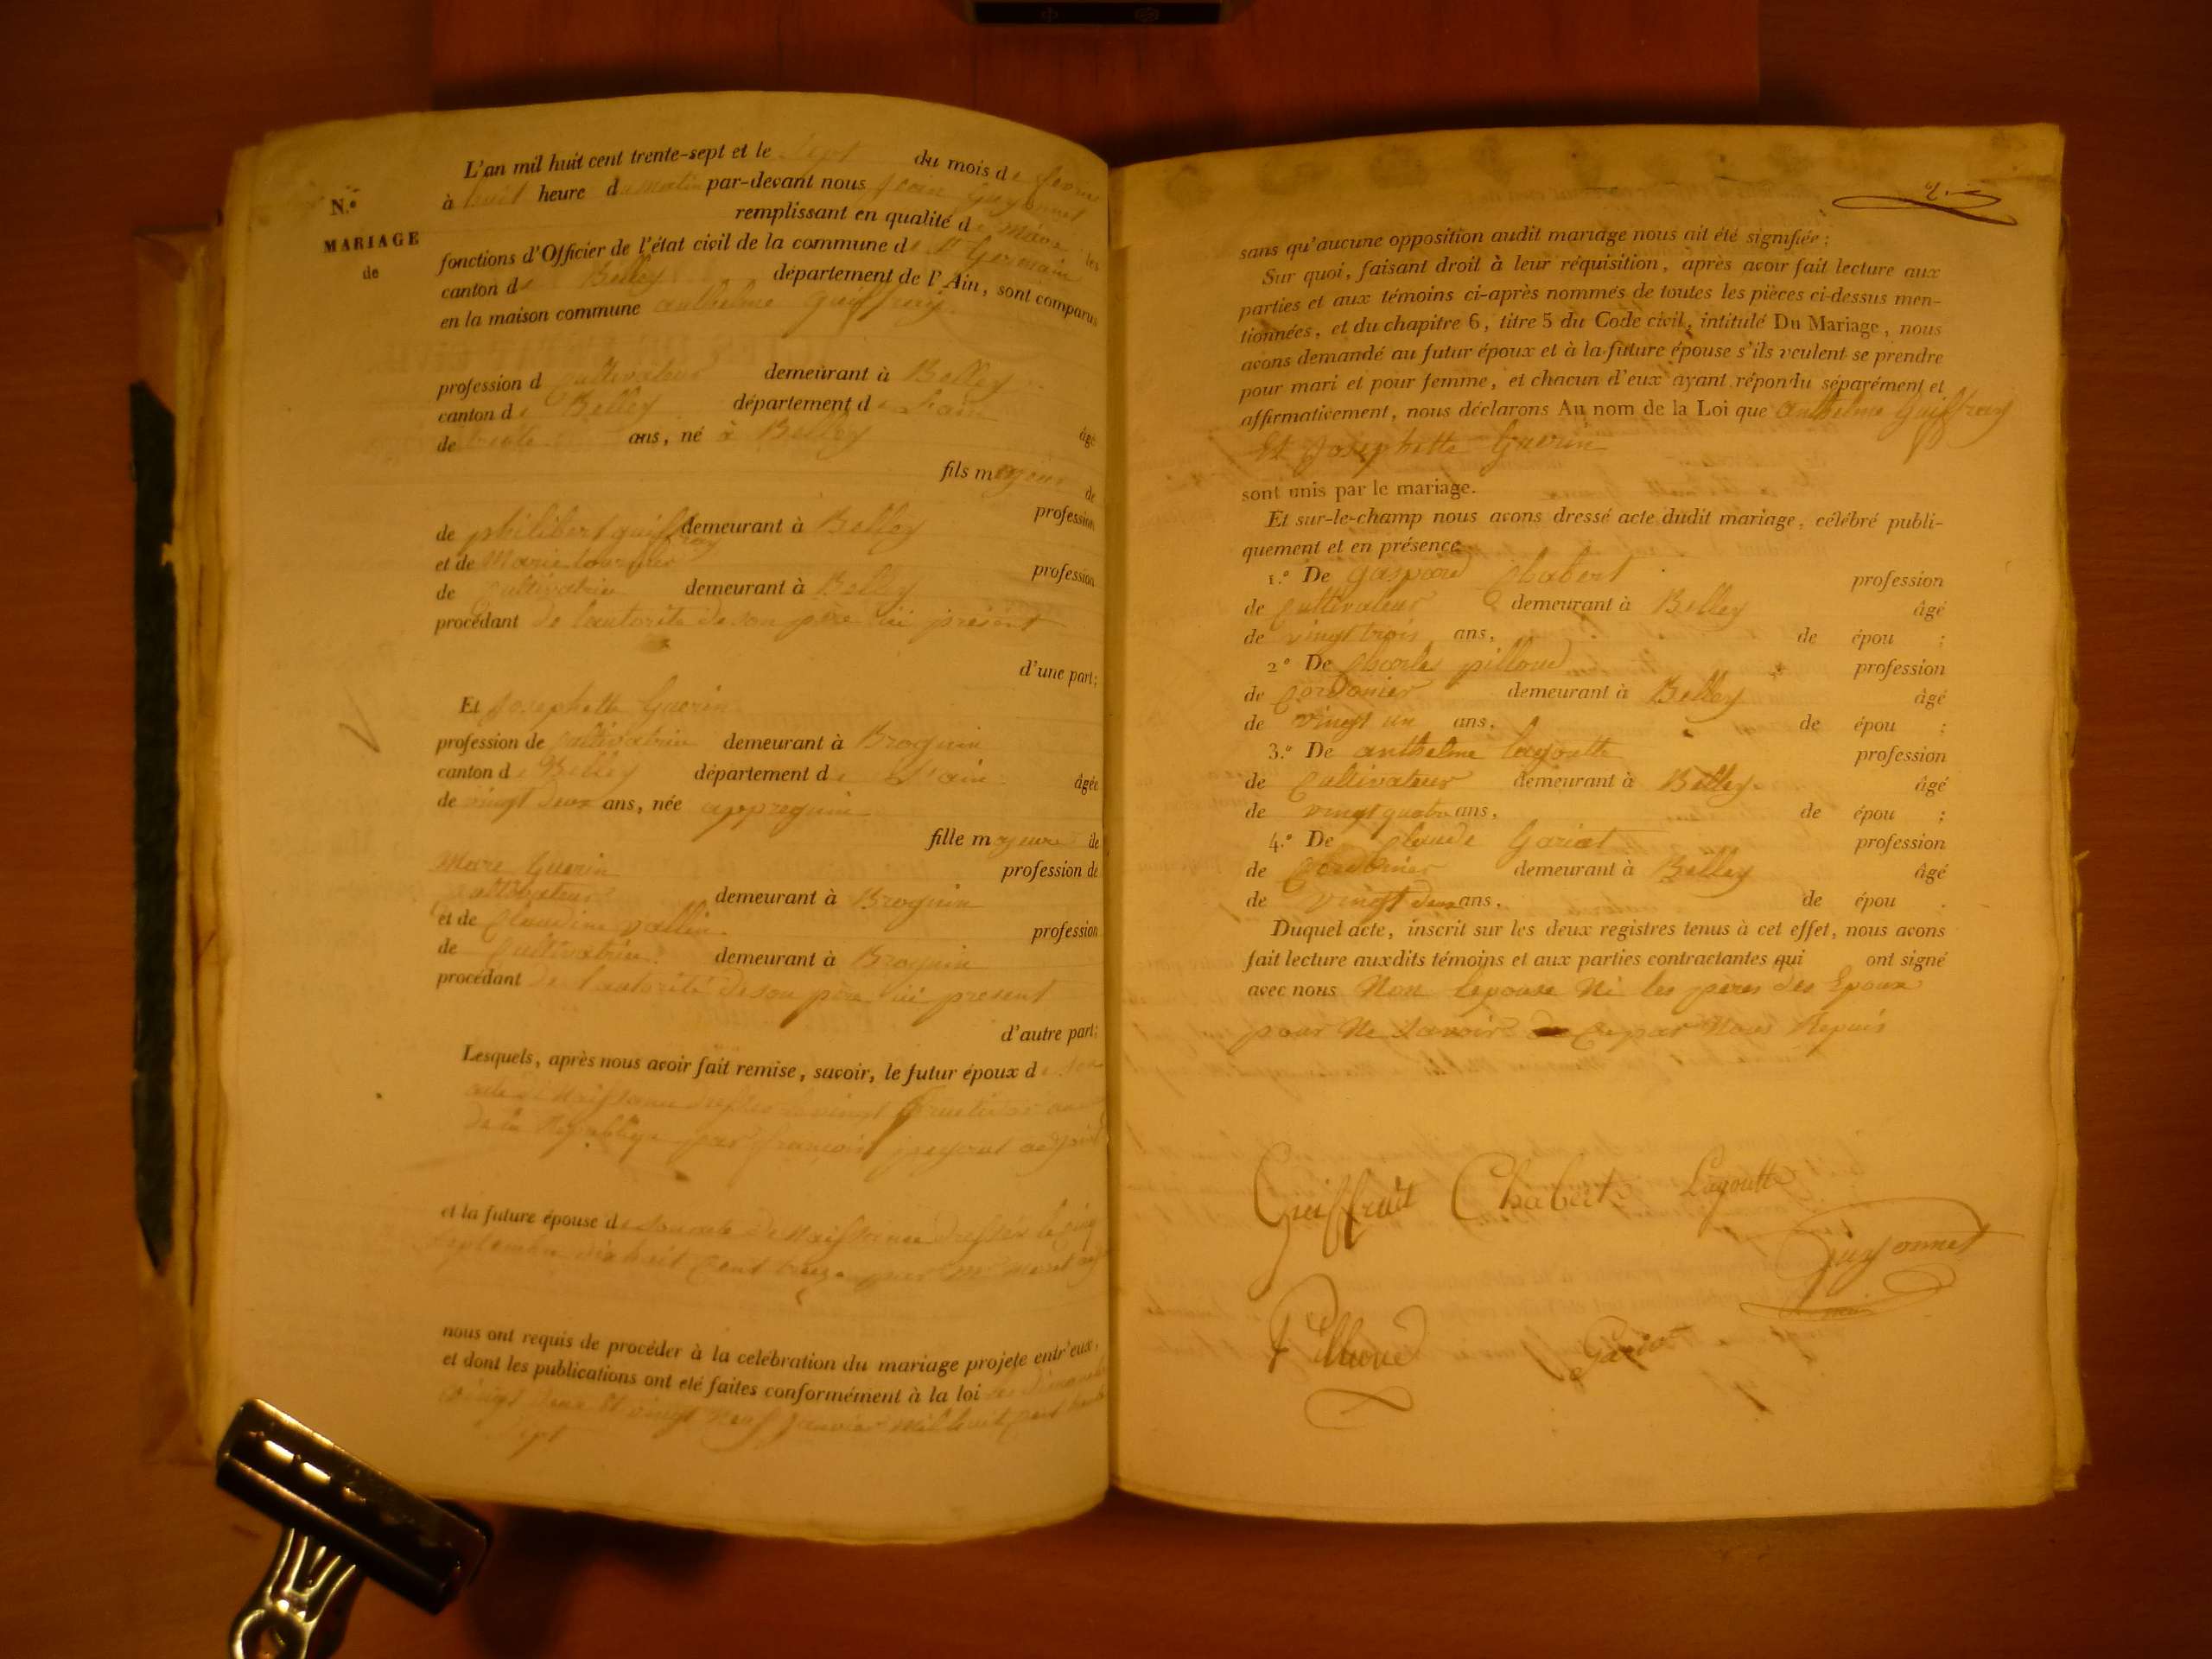 L'an mil huit cent trente-sept et le sept du mois de fevrier
N.°
à huit heure du matin par-devant nous Jean Guyonnet
MARIAGE
de
remplissant en qualité de Maire les
fonctions d'Officier de l'état civil de la commune de St Germain
canton de Belley département de l'Ain, sont comparus
en la maison commune anthelme Guiffray
profession d cultivateur demeurant à Belley
canton de Belley département de Lain
de trente ans, né à Belley âgé
fils majeur de
profession
de philibert guiffray demeurant à Belley
et de Marie
profession
de Cultivatrice demeurant à Belley
procédant de lautorité de son père ici présent
d'une part;
Et Josephette Guerin
profession de Cultivatrice demeurant à Brognin
canton de Belley département de L'ain âgée
de vingt deux ans, née
fille majeure de
Marc Guerin profession de
Cultivateur demeurant à Brognin
et de Claudine vallin profession
de Cultivatrice demeurant à Brognin
procédant de l'autorité de son père ici present
d'autre part;
Lesquels, après nous avoir fait remise, savoir, le futur époux de son
acte de Naissance le vingt fructidor an
de la République par françois adjoint
et la future épouse de son acte de Naissance dressée le cinq
septembre dix huit Cent treize par Mr
nous ont requis de procéder à la celébration du mariage projeté entr'eux,
et dont les publications ont été faites conformément à la loi les dimanches
vingt deux Et vingt Neuf Janvier Mil huit Cent trente
Sept
2
sans qu'aucune opposition audit mariage nous ait été signifiée;
Sur quoi, faisant droit à leur réquisition, après avoir fait lecture aux
parties et aux témoins ci-après nommés de toutes les pièces ci-dessus men-
tionnées, et du chapitre 6, titre 5 du Code civil, intitulé Du Mariage, nous
avons demandé au futur époux et à la future épouse s'ils veulent se prendre
pour mari et pour femme, et chacun d'eux ayant répondu séparément et
affirmativement, nous déclarons Au nom de la Loi que Anthelme Guiffray
Et Josephette Guerin
sont unis par le mariage.
Et sur-le-champ nous avons dressé acte dudit mariage, célébré publi-
quement et en présence
1.° De Gaspard Chabert profession
de Cultivateur demeurant à Belley âgé
de vingt trois ans, de épou ;
2° De Charles pilloud profession
de Cordonier demeurant à Belley âgé
de vingt un ans, de épou ;
3.° De anthelme Lagoutte profession
de Cultivateur demeurant à Belley âgé
de vingt quatre ans, de épou ;
4.° De Claude Gariot profession
de Cordonier demeurant à Belley âgé
de vingt deux ans, de épou .
Duquel acte, inscrit sur les deux registres tenus à cet effet, nous avons
fait lecture auxdits témoins et aux parties contractantes qui ont signé
avec nous Non lepouse Ni les pères des Epoux
pour Ne Savoir de Ce par Nous Requis
Guiffrait Chabert Lagoutte
Guyonnet
maire
Pilloud Gariot